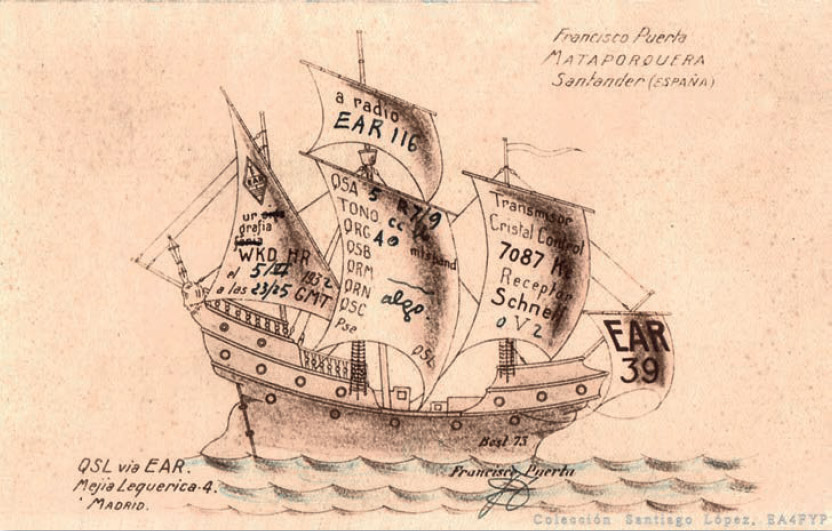 Francisco Puerta
MATAPORQUERA
Santander (ESPAÑA)
a radio
EAR 116
EAR
ur
grafia
fonia
WKD HR
el 5/II 1932
a las 23/25 GMT
QSA 5 R7/9
TONO cc
QRG 40 mtsband
QSB
QRM
QRN algo.
QSC
Pse QSL
Transmisor
Cristal Control
7087 Kc
Receptor
Schnell
0 V 2
EAR
39
Best 73
Francisco Puerta
QSL via EAR.
Mejia Lequerica-4.
MADRID.
Colección Santiago López, EA4FYP